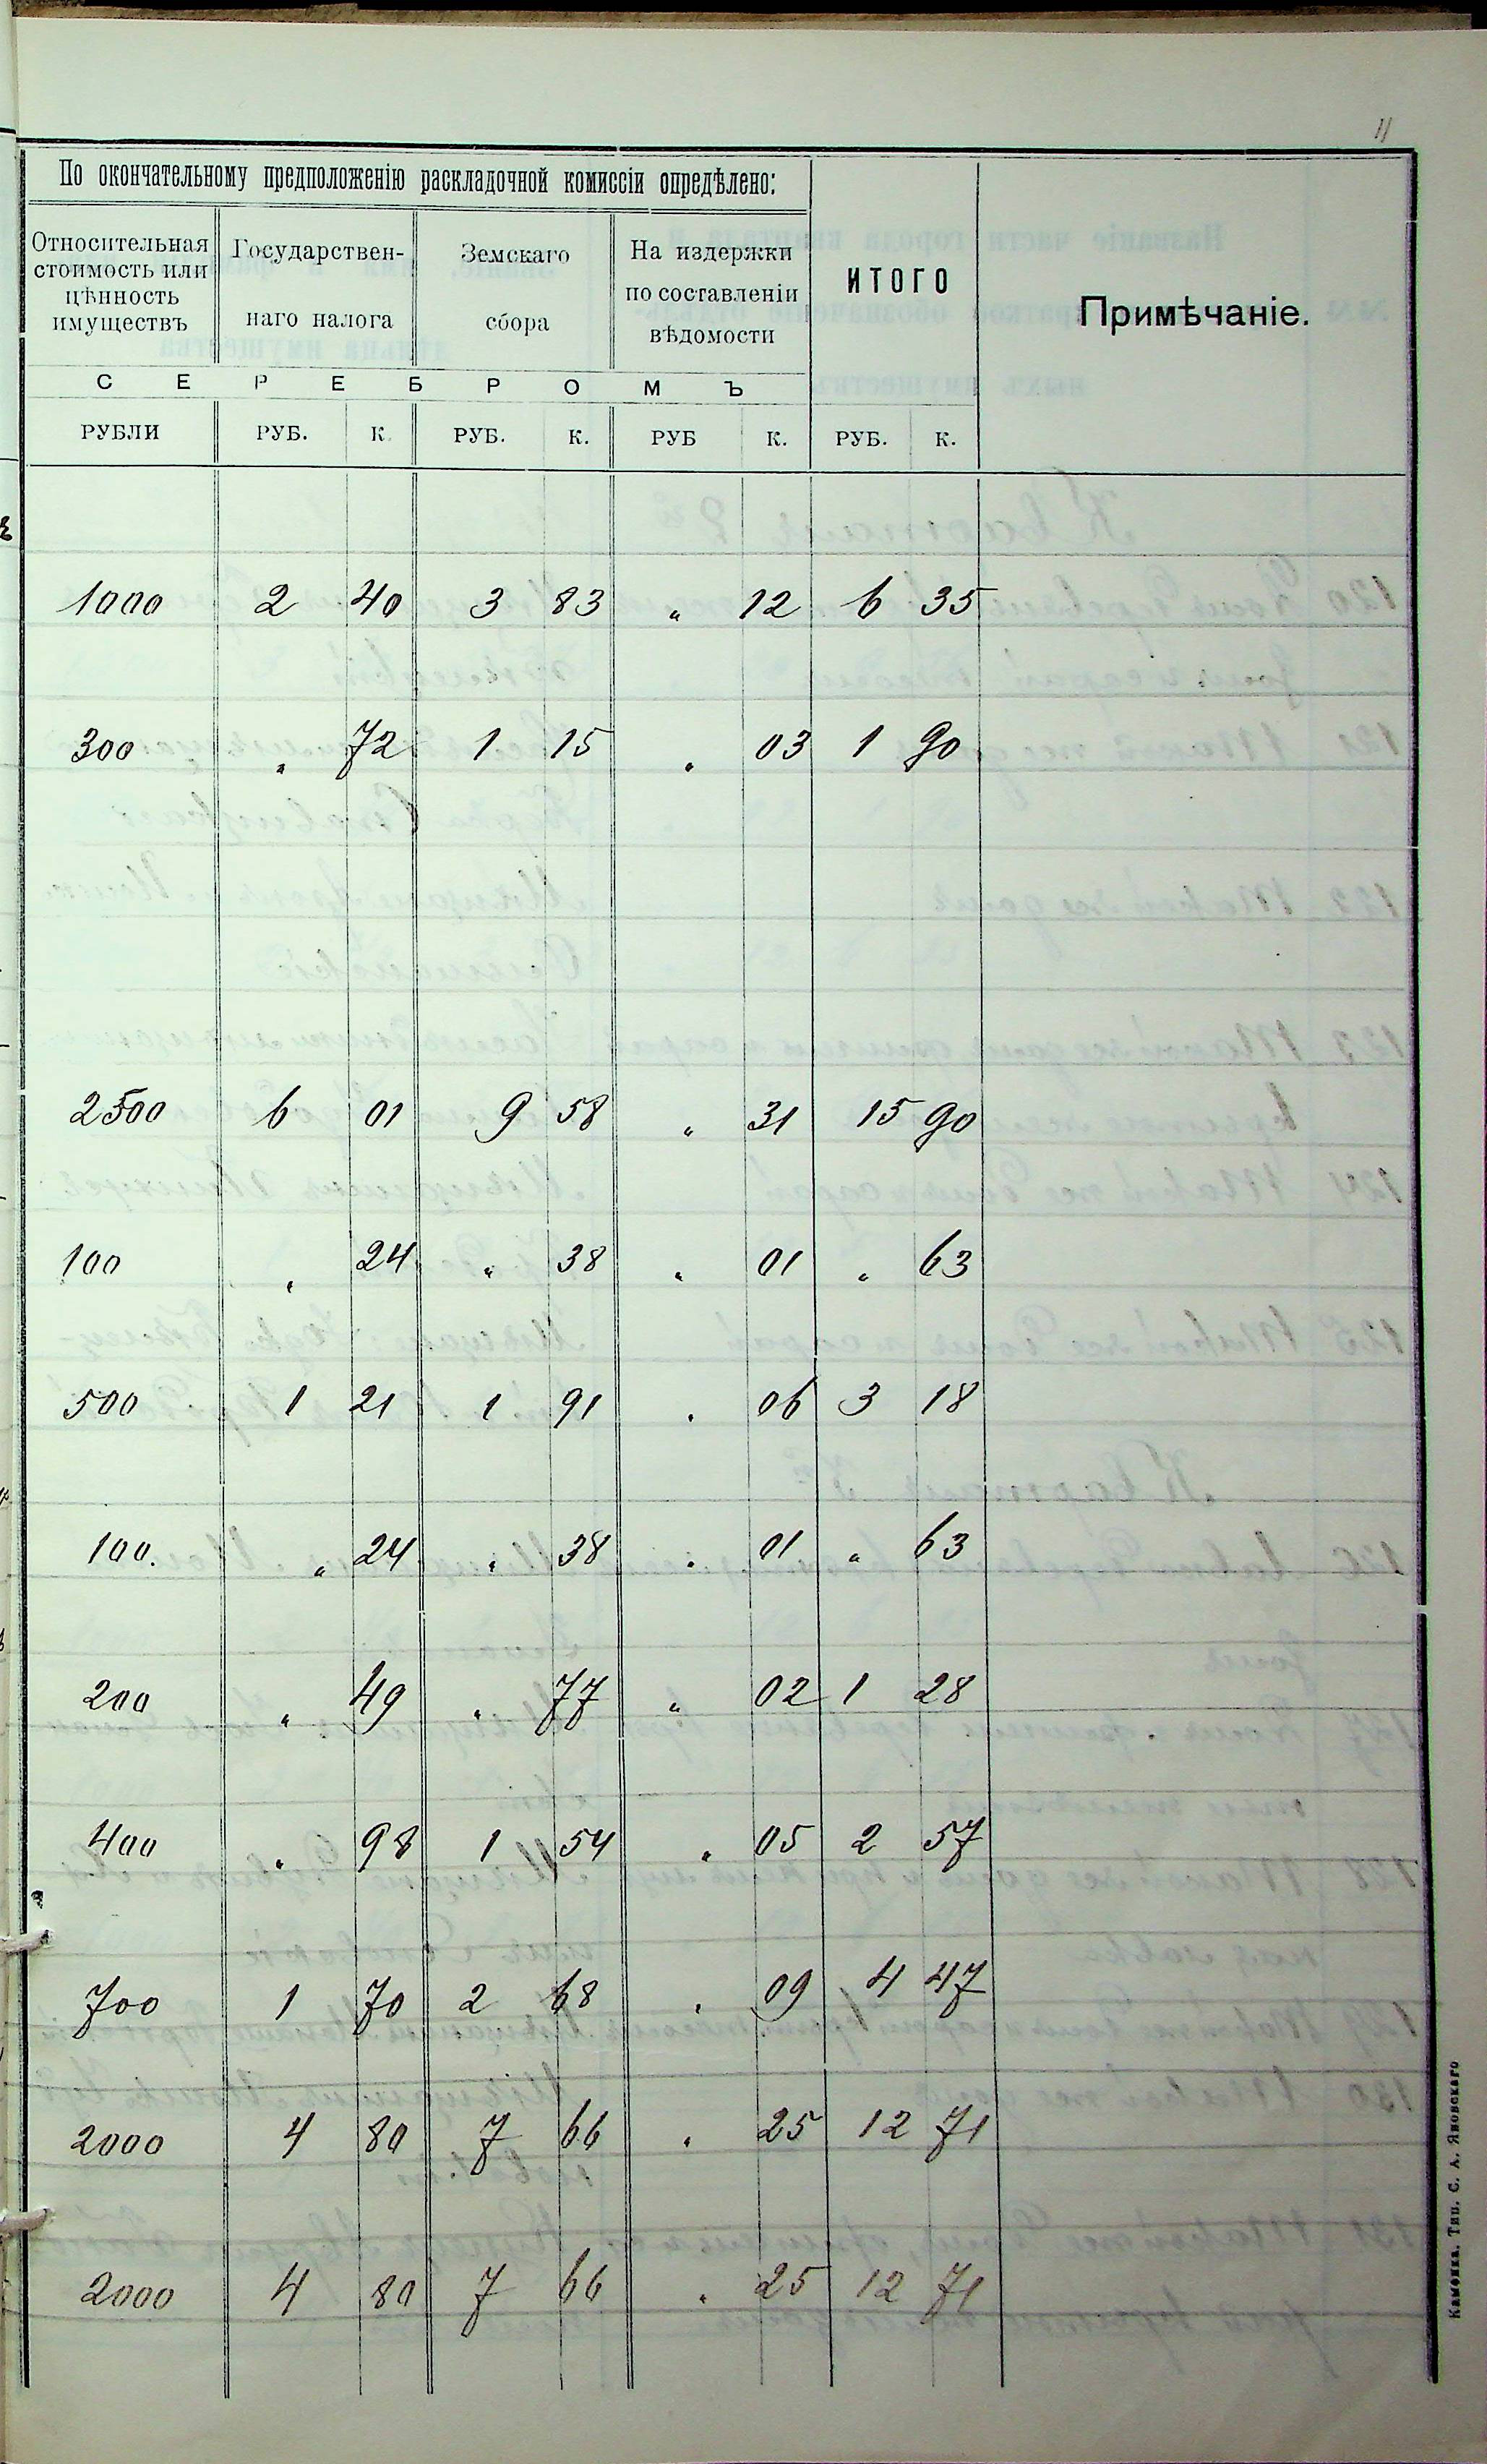 11
По окончательному предположенію раскладочной комиссіи опредѣлено:
Относительная стоимость или цѣнность имуществъ
Государственнаго налога
Земскаго сбора
На издержки по составленіи вѣдомости
ИТОГО
Примѣчаніе.
С Е Р Е Б Р О М Ъ
РУБЛИ РУБ. К. РУБ. К. РУБ К. РУБ. К.
1000 2 40 3 83 „ 12 6 35
300 „ 72 1 15 „ 03 1 90
2500 6 01 9 58 „ 31 15 90
100 „ 24 „ 38 „ 01 „ 63
500 1 21 1 91 „ 06 3 18
100. „ 24 „ 38 „ 01 „ 63
200 „ 49 „ 77 „ 02 1 28
400 „ 98 1 54 „ 05 2 57
700 1 70 2 68 „ 09 4 47
2000 4 80 7 66 „ 25 12 71
2000 4 80 7 66 „ 25 12 71
Каменка. Тип. С. А. Яновскаго